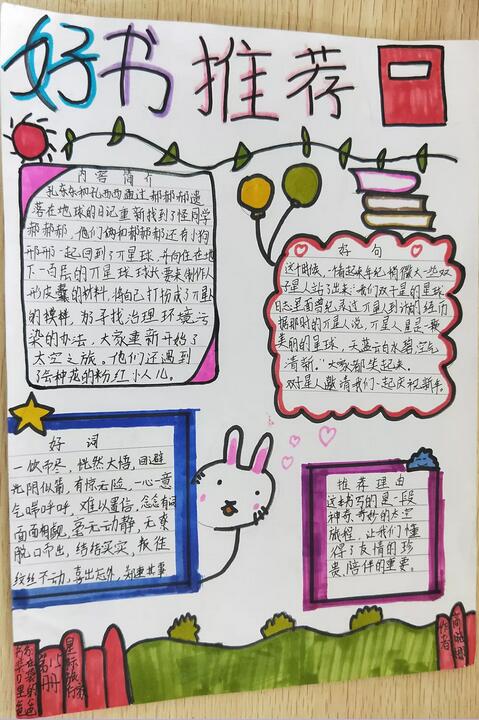 好书推荐
内容简介
孔东东和孔西西通过郝郝郝遗
落在地球的日记重新找到了怪同学
郝郝郝,他们俩和郝郝郝还有小狗
一起回到了π星,并向住在地
下一百层的π星球球长要来制作人
形皮囊的材料,将自己打扮成了π星人
的模样,为寻找治理环境污
染的办法,大家重新开始了
太空之旅。他们还遇到
了会种花的粉红小人儿。
好句
这时候,一看起来年纪稍微大一些双
子星人站了出来:我们双子星的星球
日志里面曾纪录过π星人到访的经历
据那时的π星人说,π星人是一
美丽的星球,天蓝云白水碧,空气
清新。"大家都笑起来。
双子星人邀请我们一起庆祝新年。
好词
恍然大悟,回避
光阴似箭,有惊无险,一心一意
气呼呼,难以置信,
面面相觑,毫无动静,无聊
脱口而出,结结实实,
纹丝不动,喜出望外,
推荐理由
这本书写的是一段
神奇、奇妙的太空
旅程,让我们懂
得了友情的珍
贵、陪伴的重要。
星际旅行
作者